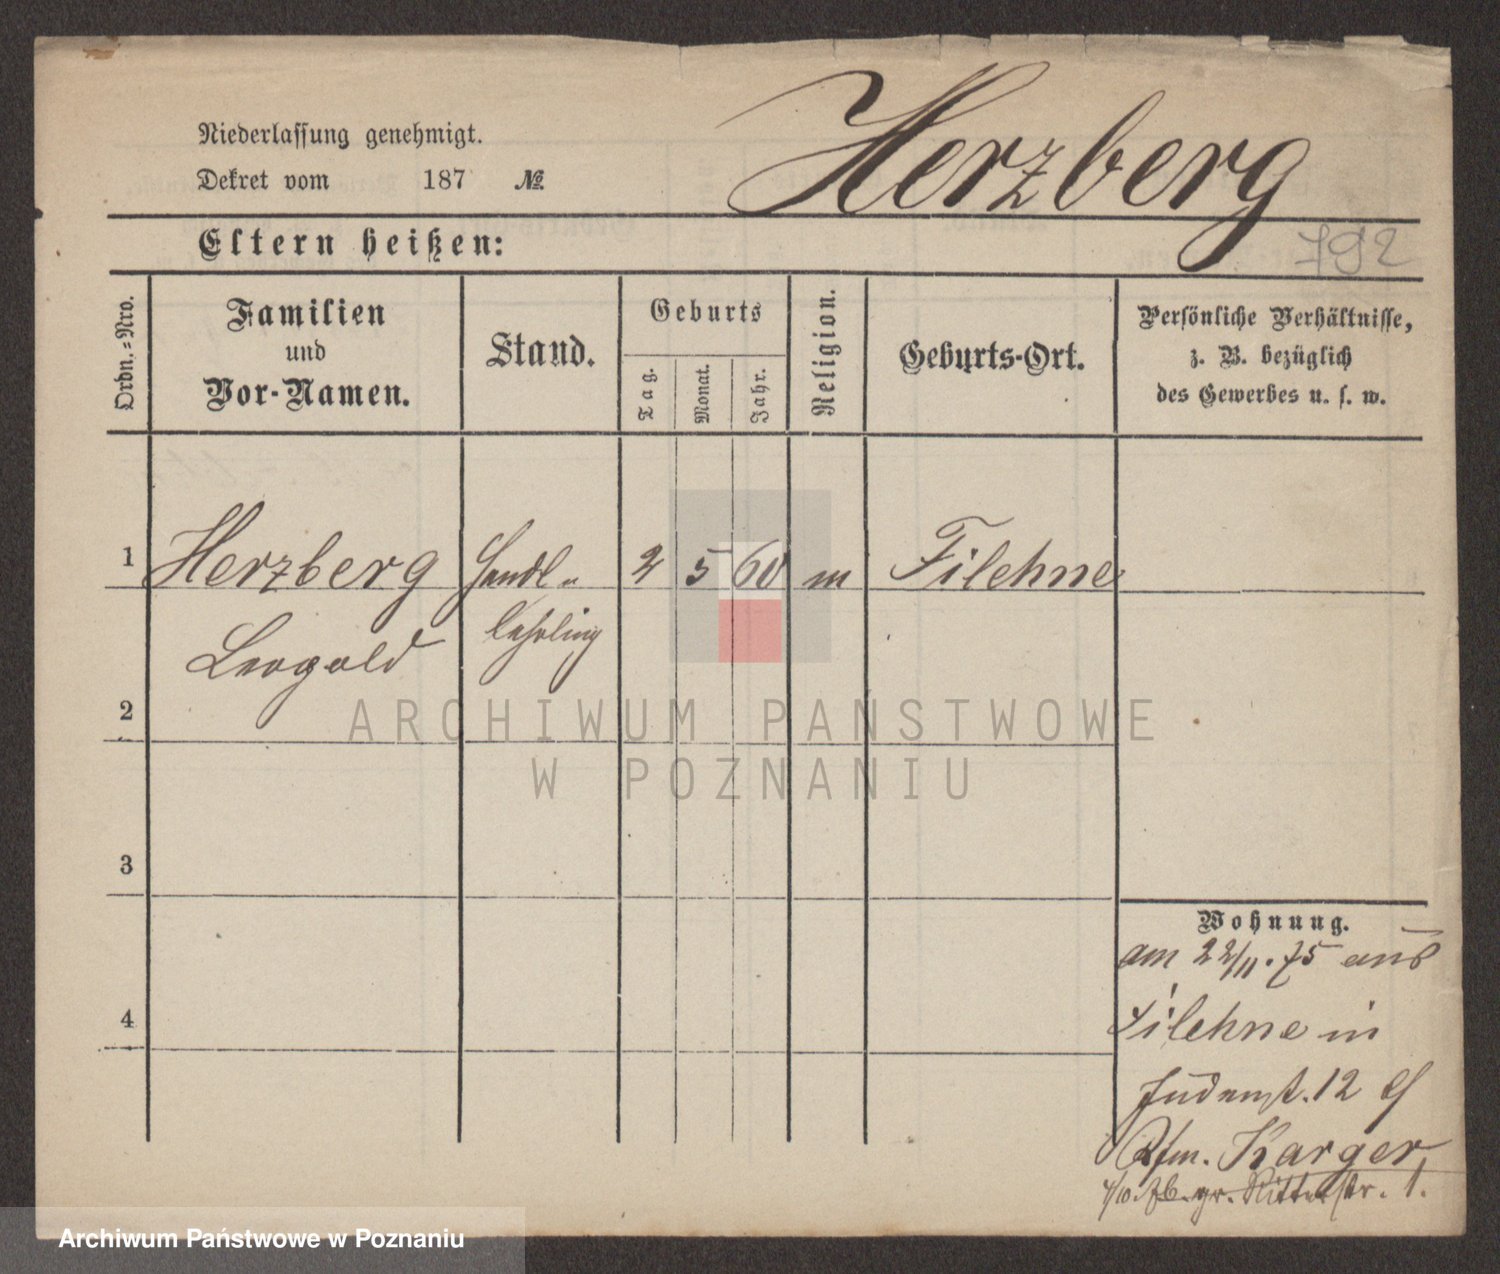 Niederlassung genehmigt.
Dekret vom 187 №
Herzberg
792
Eltern heißen:
Ordn.-Nro.
Familien
und
Vor-Namen.
Stand.
Geburts
Tag.
Monat.
Jahr.
Religion.
Geburts-Ort.
Persönliche Verhältnisse,
z. B. bezüglich
des Gewerbes u. s. w.
1 Herzberg Handl- 2 5 60 m Filehne
Leopold lehrling
2
3
4
Wohnung.
am 22/11.75 aus
Filehne in
Judenst. 12 bei
Kfm. Karger
4/10. gr. Ritterstr. 1.
ARCHIWUM PAŃSTWOWE
W POZNANIU
Archiwum Państwowe w Poznaniu